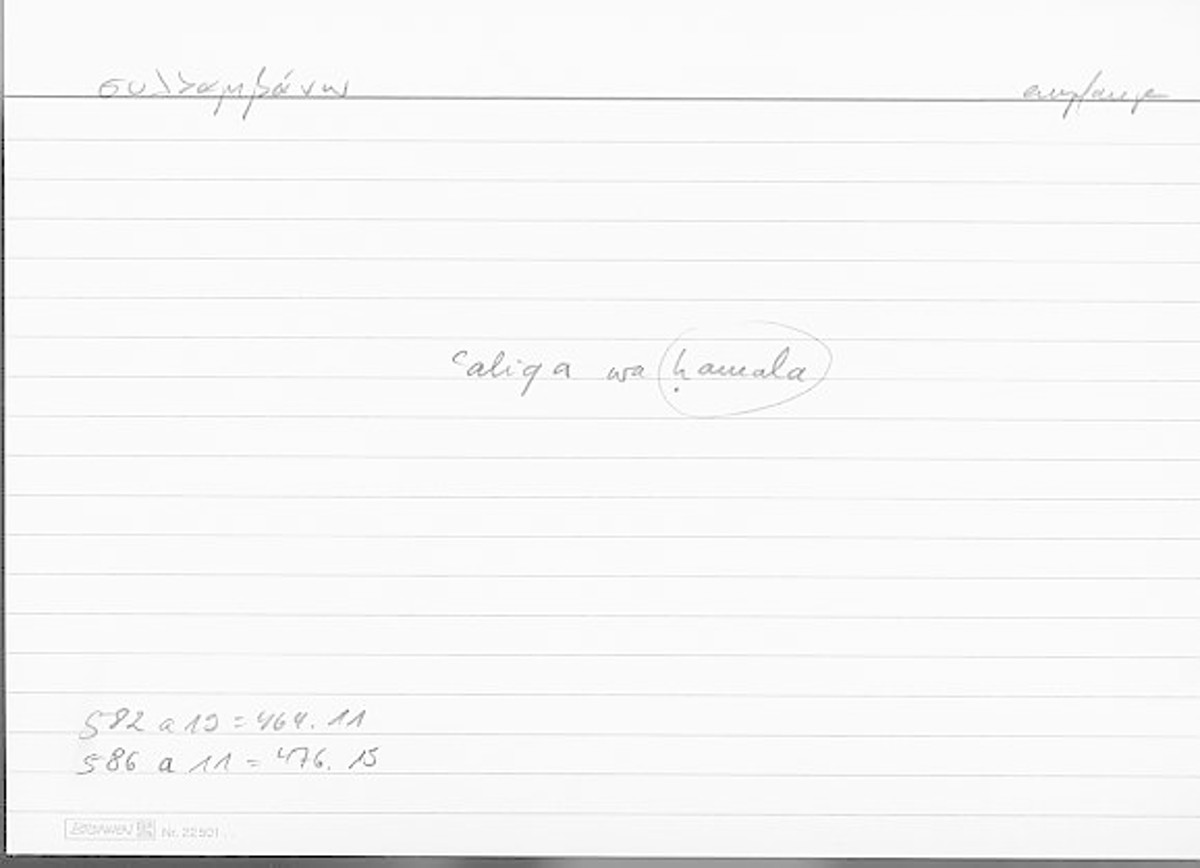 συλλαμβάνω empfange
ʿaliqa wa ḥamala
582 a 19 = 464. 11
586 a 11 = 476. 15
BRUNNEN Nr. 22501